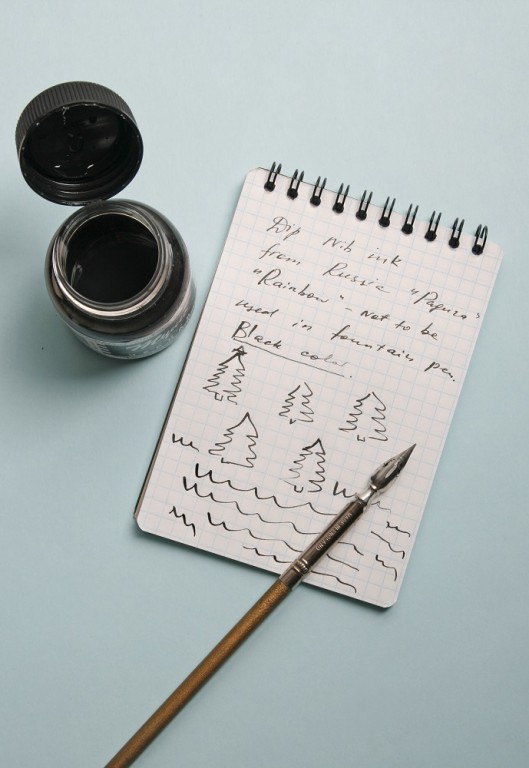 Dip nib ink
from Russia "Радуга"
"Rainbow" - Not to be
used in fountain pen.
Black color.